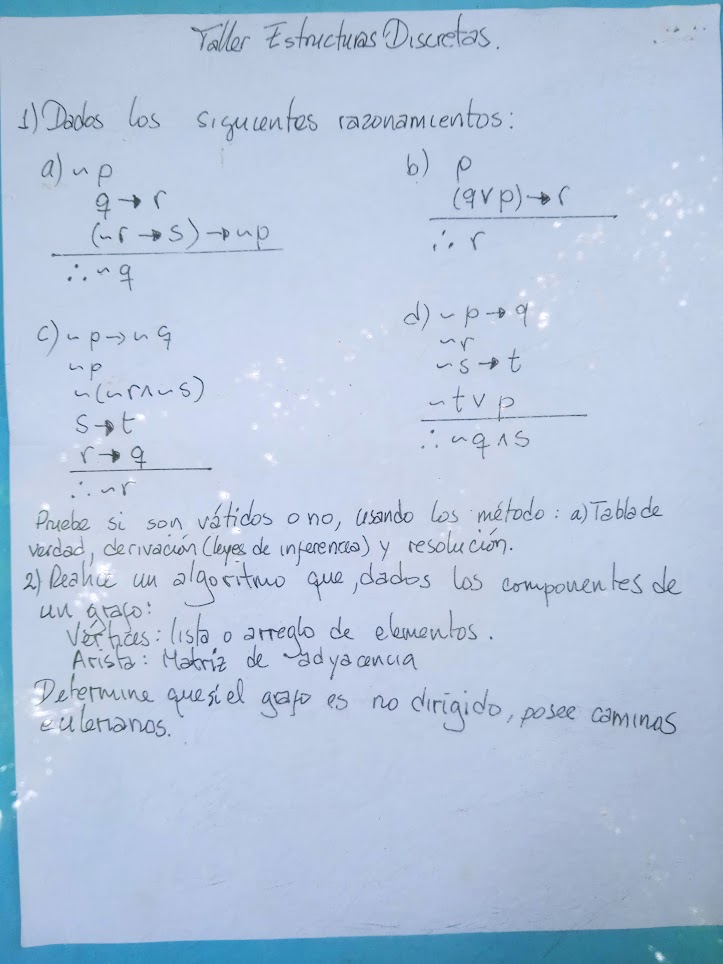 Taller Estructuras Discretas.
1) Dados los siguientes razonamientos:
a) ~p
q → r
(~r → s) → ~p
∴ ~q
b) p
(q v p) → r
∴ r
c) ~p → ~q
~p
~(~r ∧ ~s)
s → t
r → q
∴ ~r
d) ~p → q
~r
~s → t
~t v p
∴ ~q ∧ s
Pruebe si son válidos o no, usando los método: a) Tabla de
verdad, derivación (leyes de inferencia) y resolución.
2) Realice un algoritmo que, dados los componentes de
un grafo:
Vértices: lista o arreglo de elementos.
Arista: Matriz de adyacencia
Determine que si el grafo es no dirigido, posee caminos
eulerianos.